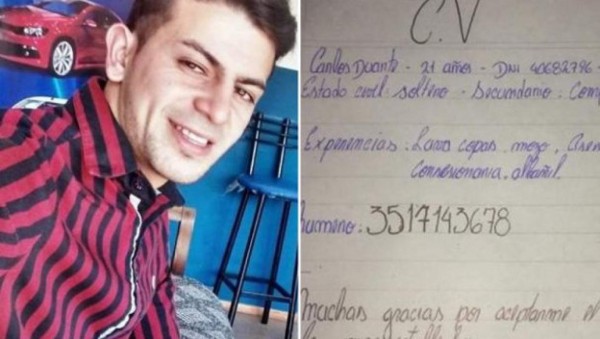 C.V
Carlos Duarte - 21 años - DNI 40682796 -
Estado civil: soltero - Secundario: Comp
Experiencias: Lava copas, mozo,
Consesionaria, albañil.
humero: 3517143678
Muchas gracias por aceptarme el